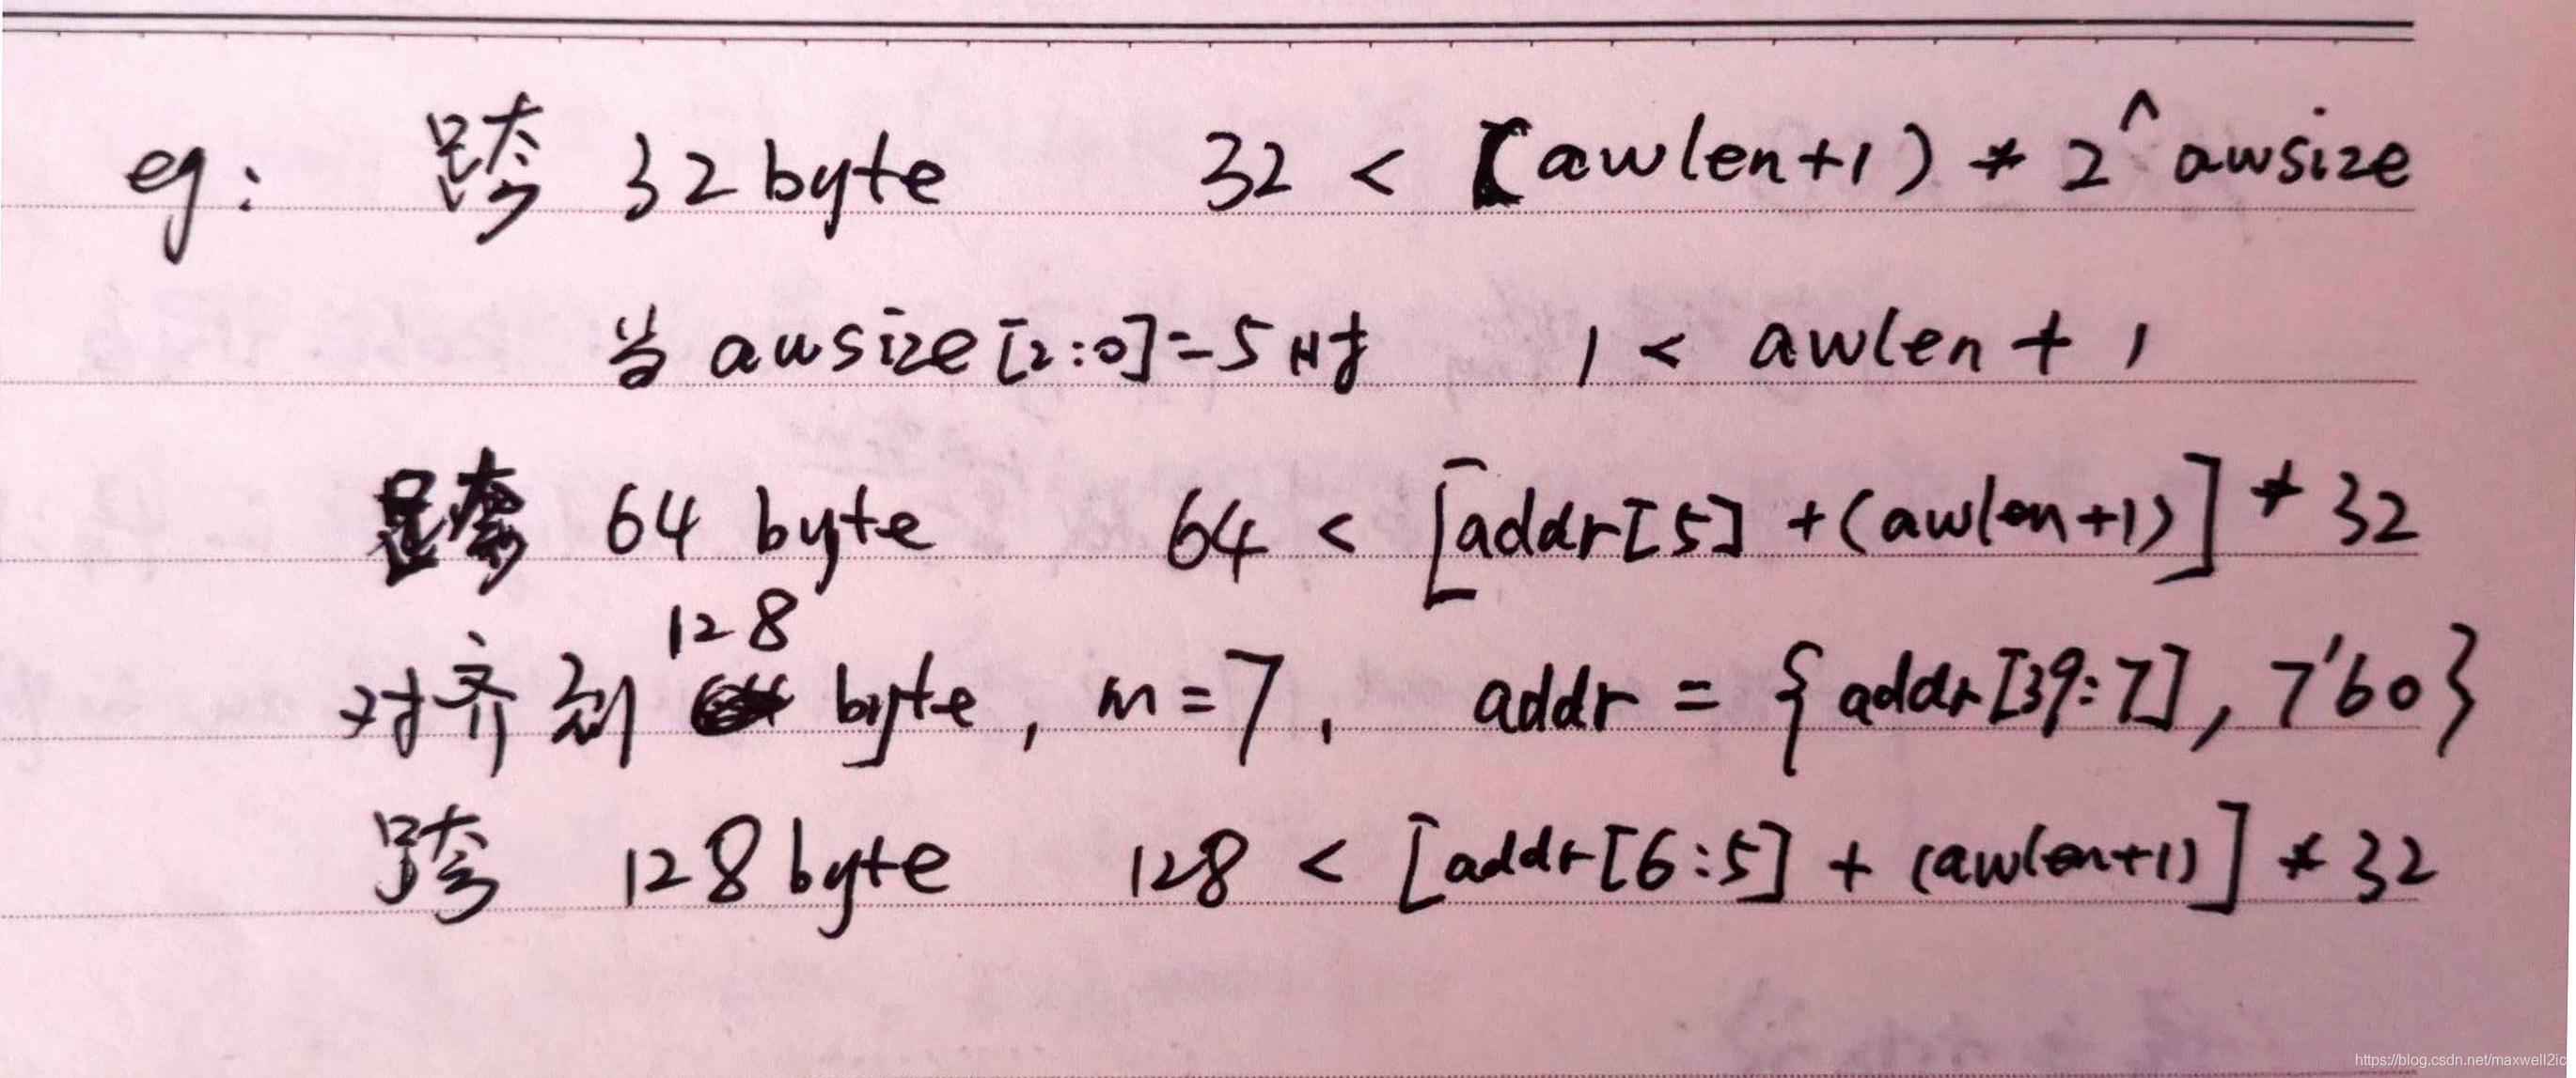 eg: 跨 32 byte 32 < (awlen+1) * 2^awsize
当 awsize[2:0]=5时 1 < awlen + 1
跨 64 byte 64 < [addr[5] +(awlen+1)] * 32
对齐到 128 byte, m=7, addr = {addr[39:7], 7'b0}
跨 128 byte 128 < [addr[6:5] + (awlen+1)] * 32
https://blog.csdn.net/maxwell2ic